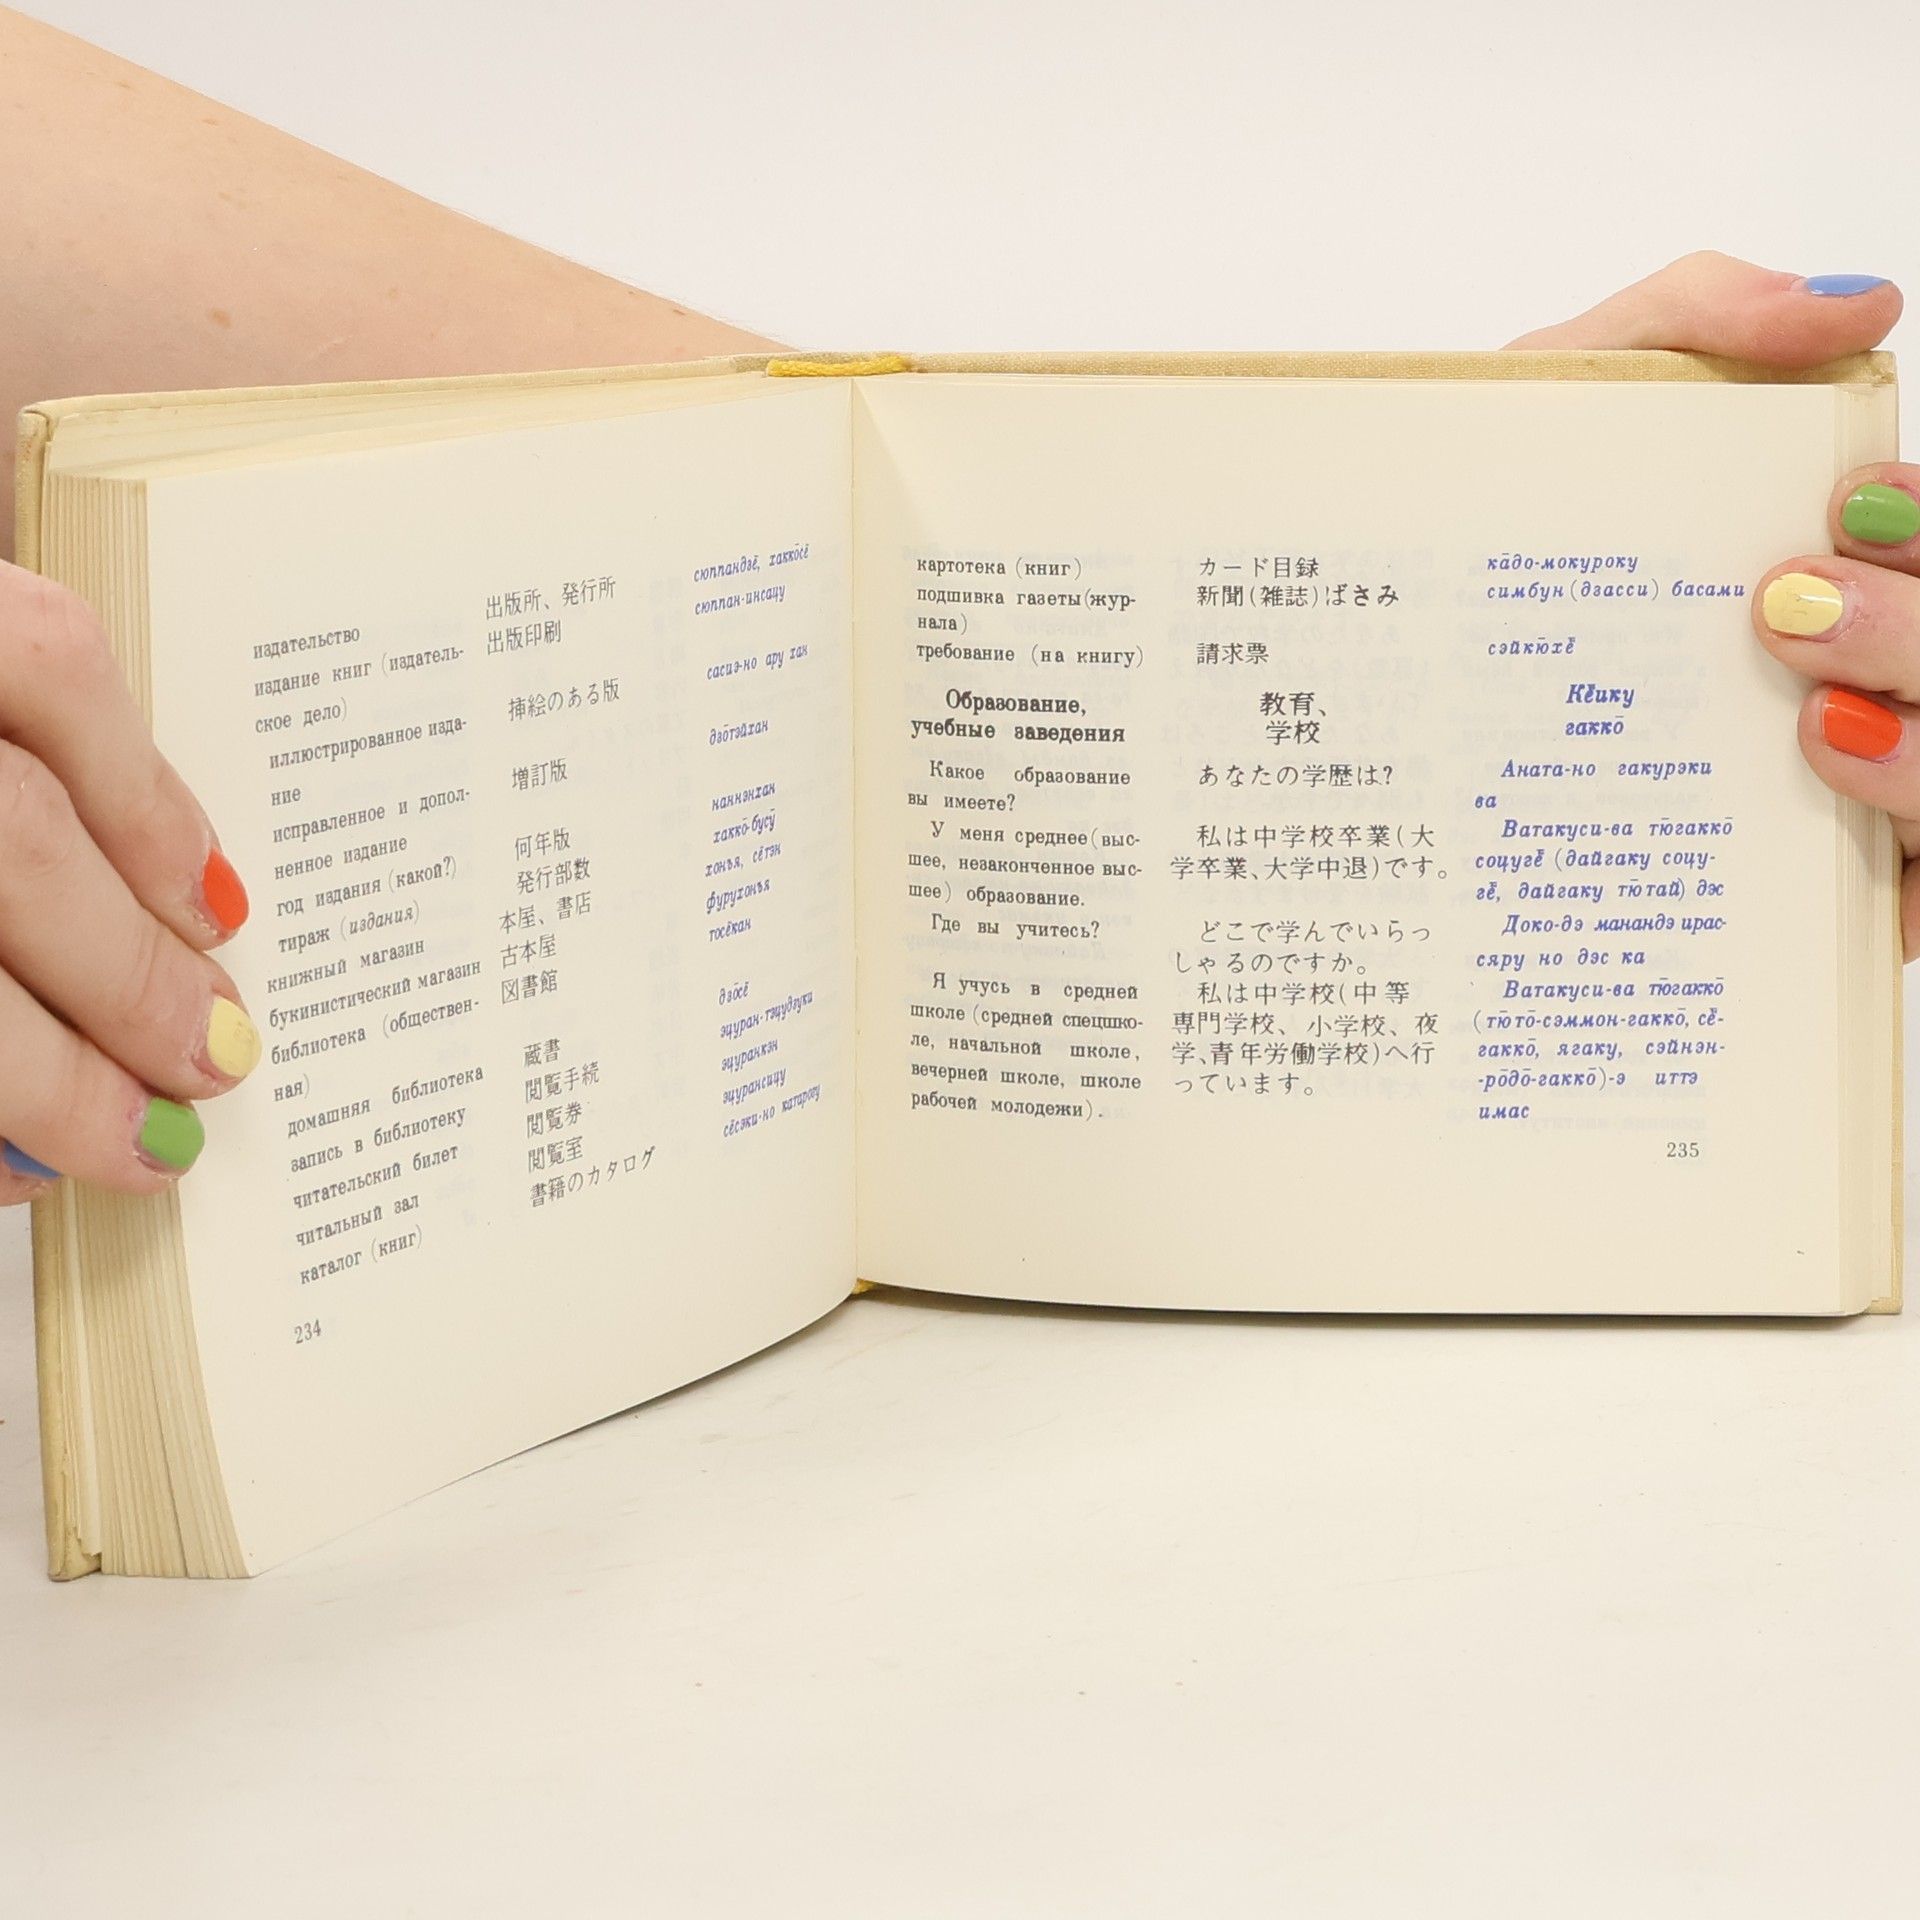 издательство 出版所、発行所 сюппандзё, хаккōсё
издание книг (издатель- 出版印刷 сюппан-инсацу
ское дело)
иллюстрированное изда- 挿絵のある版 сасиэ-но ару хан
ние
исправленное и допол- 増訂版 дзōтэйхан
ненное издание
год издания (какой?) 何年版 наннэнхан
тираж (издания) 発行部数 хаккō-бусӯ
книжный магазин 本屋、書店 хонъя, сётэн
букинистический магазин 古本屋 фурухонъя
библиотека (обществен- 図書館 тосёкан
ная)
домашняя библиотека 蔵書 дзōсё
запись в библиотеку 閲覧手続 эцуран-тэцудзуки
читательский билет 閲覧券 эцуранкэн
читальный зал 閲覧室 эцурансицу
каталог (книг) 書籍のカタログ сёсэки-но катарогу
234
картотека (книг) カード目録 кāдо-мокуроку
подшивка газеты(жур- 新聞(雑誌)ばさみ симбун(дзасси) басами
нала)
требование (на книгу) 請求票 сэйкю̄хё̄
Образование, 教育、 Кё̄ику
учебные заведения 学校 гаккō
Какое образование あなたの学歴は? Аната-но гакурэки
вы имеете? ва
У меня среднее(выс- 私は中学校卒業(大 Ватакуси-ва тю̄гаккō
шее, незаконченное выс- 学卒業、大学中退)です。 соцугё̄ (дайгаку соцу-
шее) образование. гё̄, дайгаку тю̄тай) дэс
Где вы учитесь? どこで学んでいらっ Доко-дэ манандэ ирас-
しゃるのですか。 сяру но дэс ка
Я учусь в средней 私は中学校(中等 Ватакуси-ва тю̄гаккō
школе (средней спецшко- 専門学校、小学校、夜 (тю̄тō-сэммон-гаккō, сё̄-
ле, начальной школе, 学、青年労働学校)へ行 гаккō, ягаку, сэйнэн-
вечерней школе, школе っています。 -рōдō-гаккō)-э иттэ
рабочей молодежи). имас
235